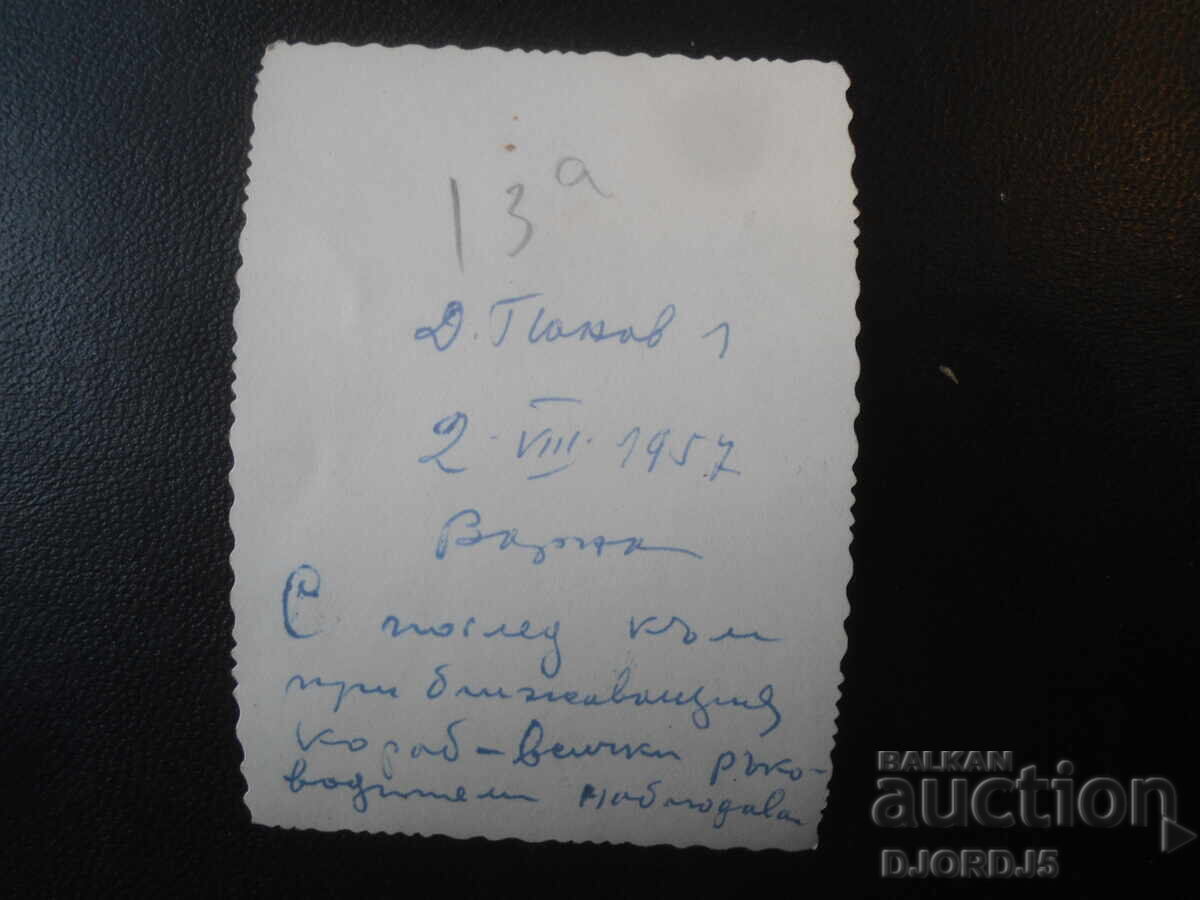 13а
Д. Панов 1
2. VIII. 1957
Варна
С поглед към
приближаващия
кораб – всички ръко-
водители наблюдава
BALKAN
auction
DJORDJ5